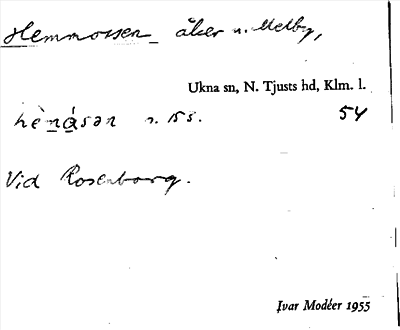 Hemmossen åker n. Melby,
Ukna sn, N. Tjusts hd, Klm. l.
54
Vid Rosenborg.
Ivar Modéer 1955